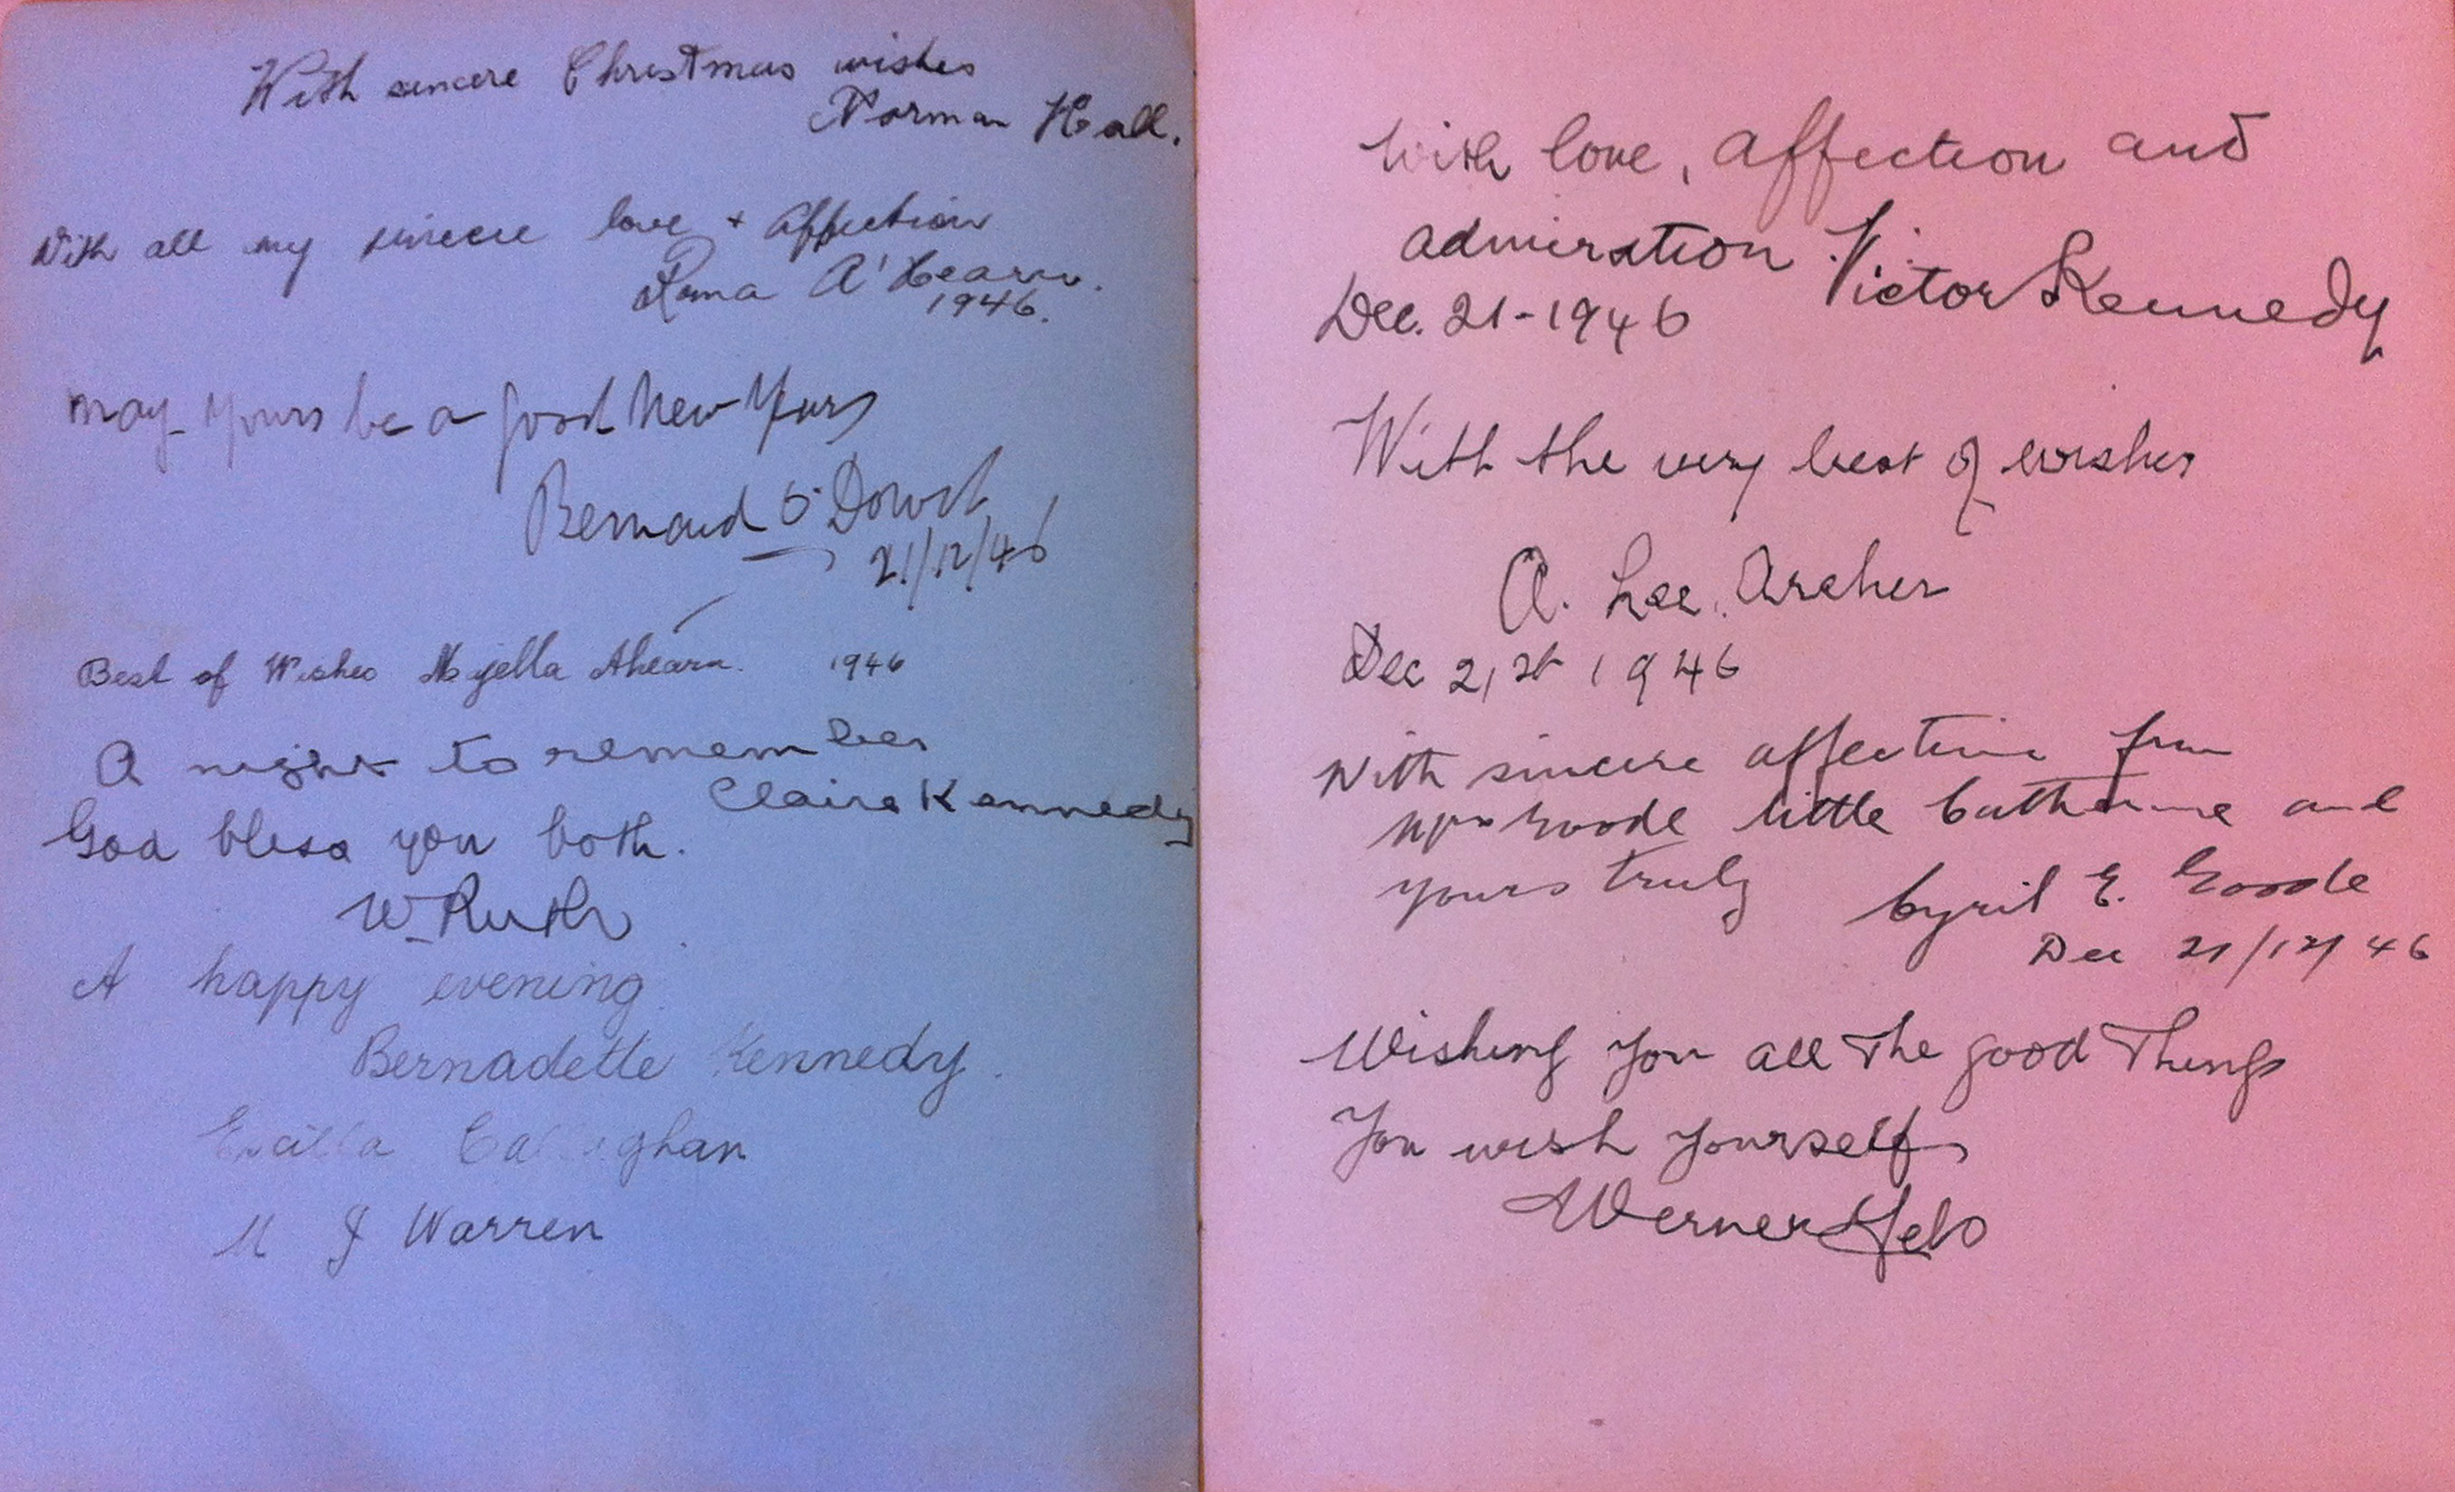 With sincere Christmas wishes
Norman Hall.
With all my sincere love + affection
A'Hearn.
1946.
May yours be a good New Years
Bernard O'Dowd
21/12/46
Best of Wishes Nyella Ahearn. 1946
A night to remember
Claire Kennedy
God bless you both.
W. Ruth
A happy evening
Bernadette Kennedy.
M J Warren
With love, affection and
admiration. Victor Kennedy
Dec. 21-1946
With the very best of wishes
A. Lee. Archer
Dec 21st 1946
With sincere affection from
Mrs Goode little Catherine and
yours truly Cyril E. Goode
Dec 21/12/46
Wishing you all the good Things
You wish yourself
Werner